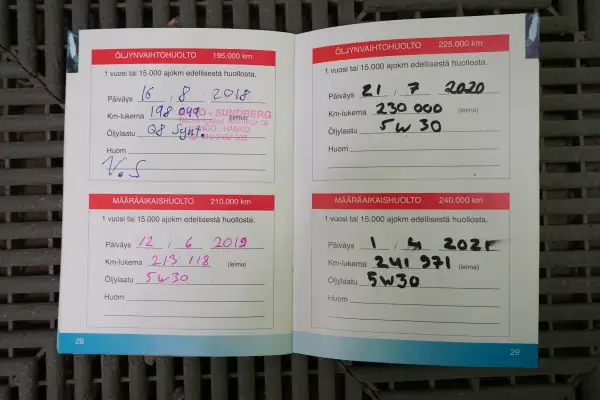 ÖLJYNVAIHTOHUOLTO 195.000 km
1 vuosi tai 15.000 ajokm edellisestä huollosta.
Päiväys 16 , 8 2018
Km-lukema 198 049 (leima)
Öljylaatu Q8 Synt.
- SUNDBERG
- HANKO
Huom
V.S
MÄÄRÄAIKAISHUOLTO 210.000 km
1 vuosi tai 15.000 ajokm edellisestä huollosta.
Päiväys 12 , 6 2019
Km-lukema 213 118 (leima)
Öljylaatu 5w30
Huom
28
ÖLJYNVAIHTOHUOLTO 225.000 km
1 vuosi tai 15.000 ajokm edellisestä huollosta.
Päiväys 21 , 7 2020
Km-lukema 230 000 (leima)
Öljylaatu 5w30
Huom
MÄÄRÄAIKAISHUOLTO 240.000 km
1 vuosi tai 15.000 ajokm edellisestä huollosta.
Päiväys 1 , 2021
Km-lukema 241 971 (leima)
Öljylaatu 5w30
Huom
29